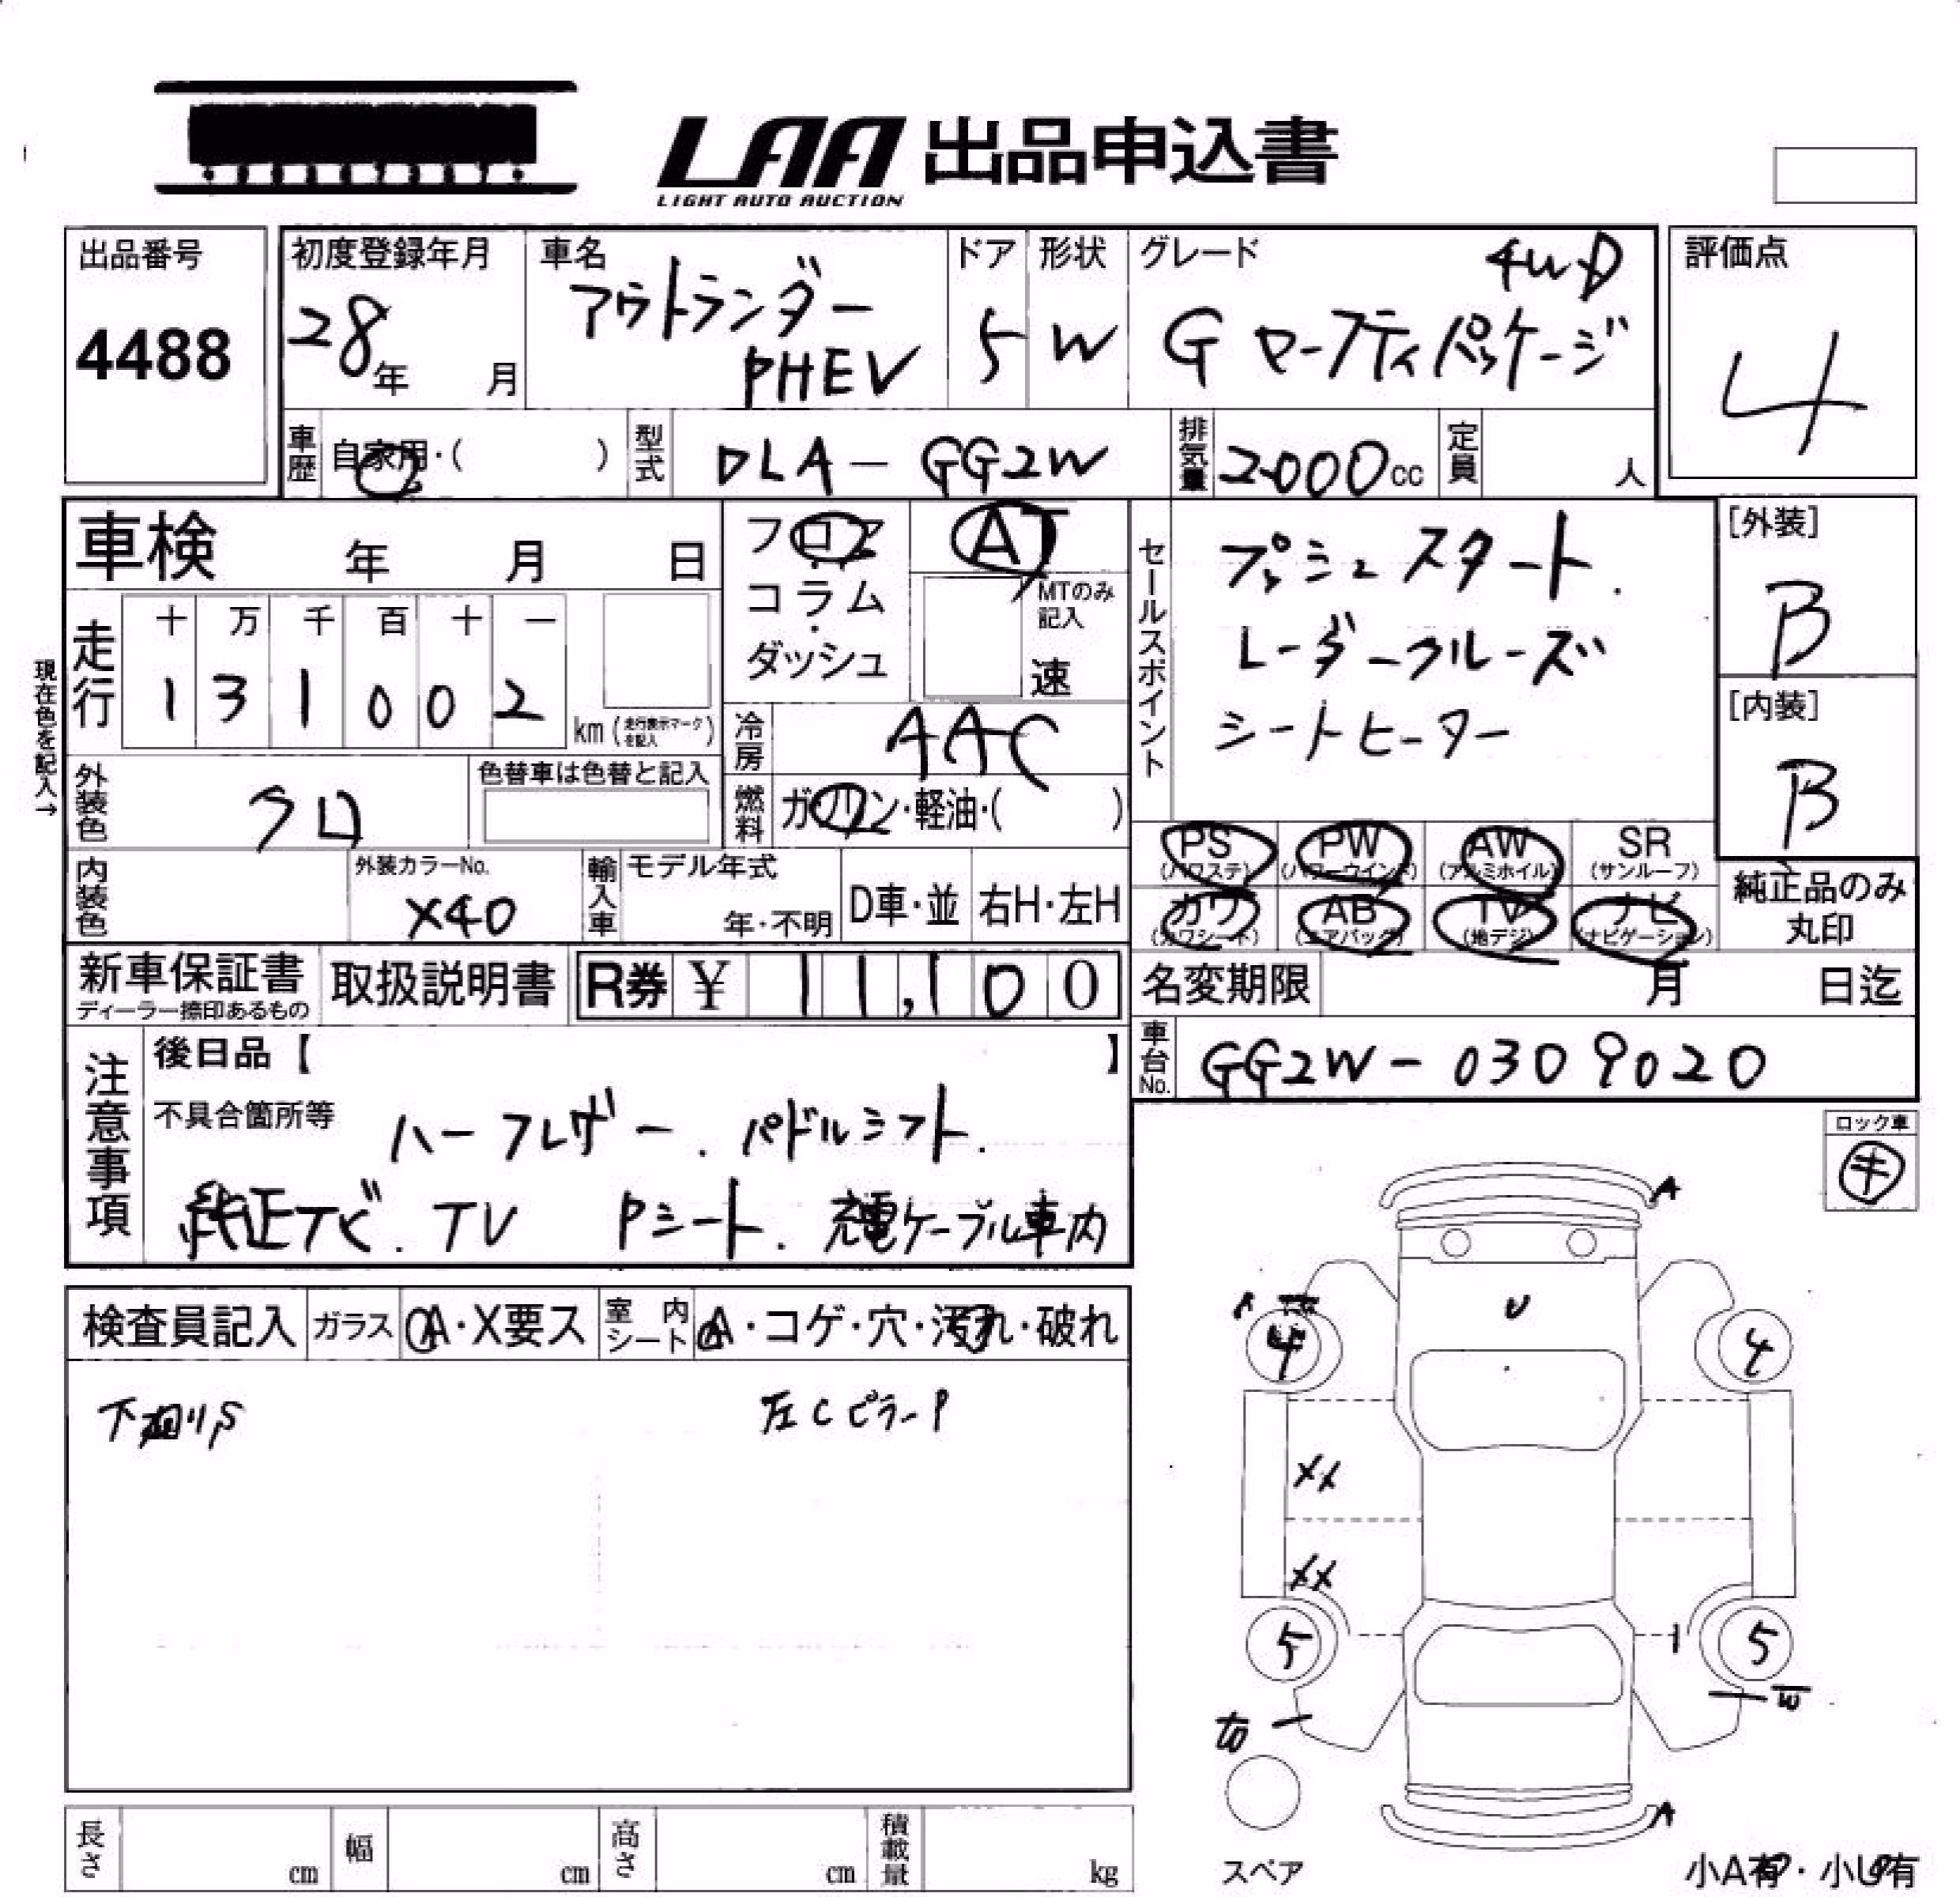 LAA 出品申込書
LIGHT AUTO AUCTION
出品番号
4488
初度登録年月
28年 月
車名
アウトランダー
PHEV
ドア
5
形状
W
グレード
4WD
G セーフティパッケージ
評価点
4
車歴 自家用・( )
型式 DLA-GG2W
排気量 2000cc
定員 人
車検 年 月 日
フロア
コラム
・
ダッシュ
AT
MTのみ
記入
速
セールスポイント
プッシュスタート.
レーダークルーズ
シートヒーター
[外装]
B
[内装]
B
現在色を記入→
走行
十 万 千 百 十 一
1 3 1 0 0 2
km (走行表示マークを記入)
冷房 AAC
外装色 クロ
色替車は色替と記入
燃料 ガソリン・軽油・( )
PS (パワステ)
PW (パワーウインド)
AW (アルミホイル)
SR (サンルーフ)
カワ (カワシート)
AB (エアバッグ)
TV (地デジ)
ナビ (ナビゲーション)
純正品のみ
丸印
内装色
外装カラーNo.
X40
輸入車
モデル年式
年・不明
D車・並
右H・左H
新車保証書
ディーラー捺印あるもの
取扱説明書
R券 ¥ 11,100
名変期限 月 日迄
車台No. GG2W-0309020
注意事項
後日品【 】
不具合箇所等
ハーフレザー. パドルシフト.
純正ナビ. TV Pシート. 充電ケーブル車内
ロック車
キ
検査員記入
ガラス
A・X要ス
室内シート
A・コゲ・穴・汚れ・破れ
下廻りS
左CピラーP
A
U
4
4
XX
XX
5
5
A
スペア
小A有・小U有
長さ cm
幅 cm
高さ cm
積載量 kg